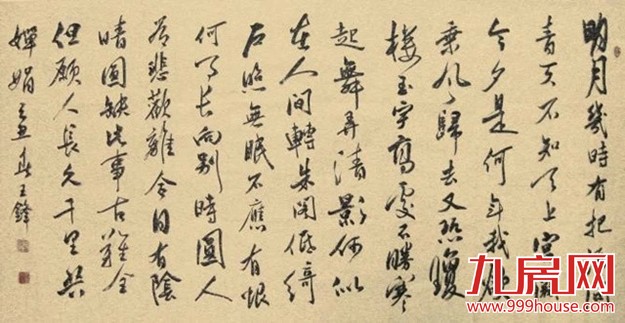 明月幾時有把酒問
青天不知天上宮闕
今夕是何年我欲
乘風歸去又恐瓊
樓玉宇高處不勝寒
起舞弄清影何似
在人間轉朱閣低綺
户照無眠不應有恨
何事長向別時圓人
有悲歡離合月有陰
晴圓缺此事古難全
但願人長久千里共
嬋娟 春王鋒
九房网
www.999house.com